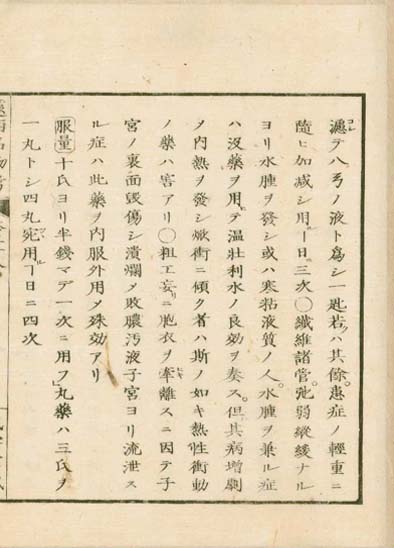 濾テ八弓ノ液ト爲シ一匙若クハ其餘患症ノ輕重ニ
隨ヒ加減シ用ヿ日三次〇纖維諸管弛弱縱緩ナル
ヨリ水腫ヲ發シ或ハ寒粘液質ノ人水腫ヲ兼ル症
ハ沒藥ヲ用テ温壯利水ノ良効ヲ奏ス但其病増劇
メ内熱ヲ發シ焮衝ニ傾ク者ハ斯ノ如キ熱性衝動
ノ藥ハ害アリ〇粗工妄リニ胞衣ヲ牽離スニ因テ子
宮ノ裏面毀傷シ潰爛メ敗膿汚液子宮ヨリ流泄ス
ル症ハ此藥ヲ内服外用メ殊効アリ
服量十氏ヨリ半錢マデ一次ニ用フ丸藥ハ三氏ヲ
一丸トシ四丸宛用ヿ日ニ四次